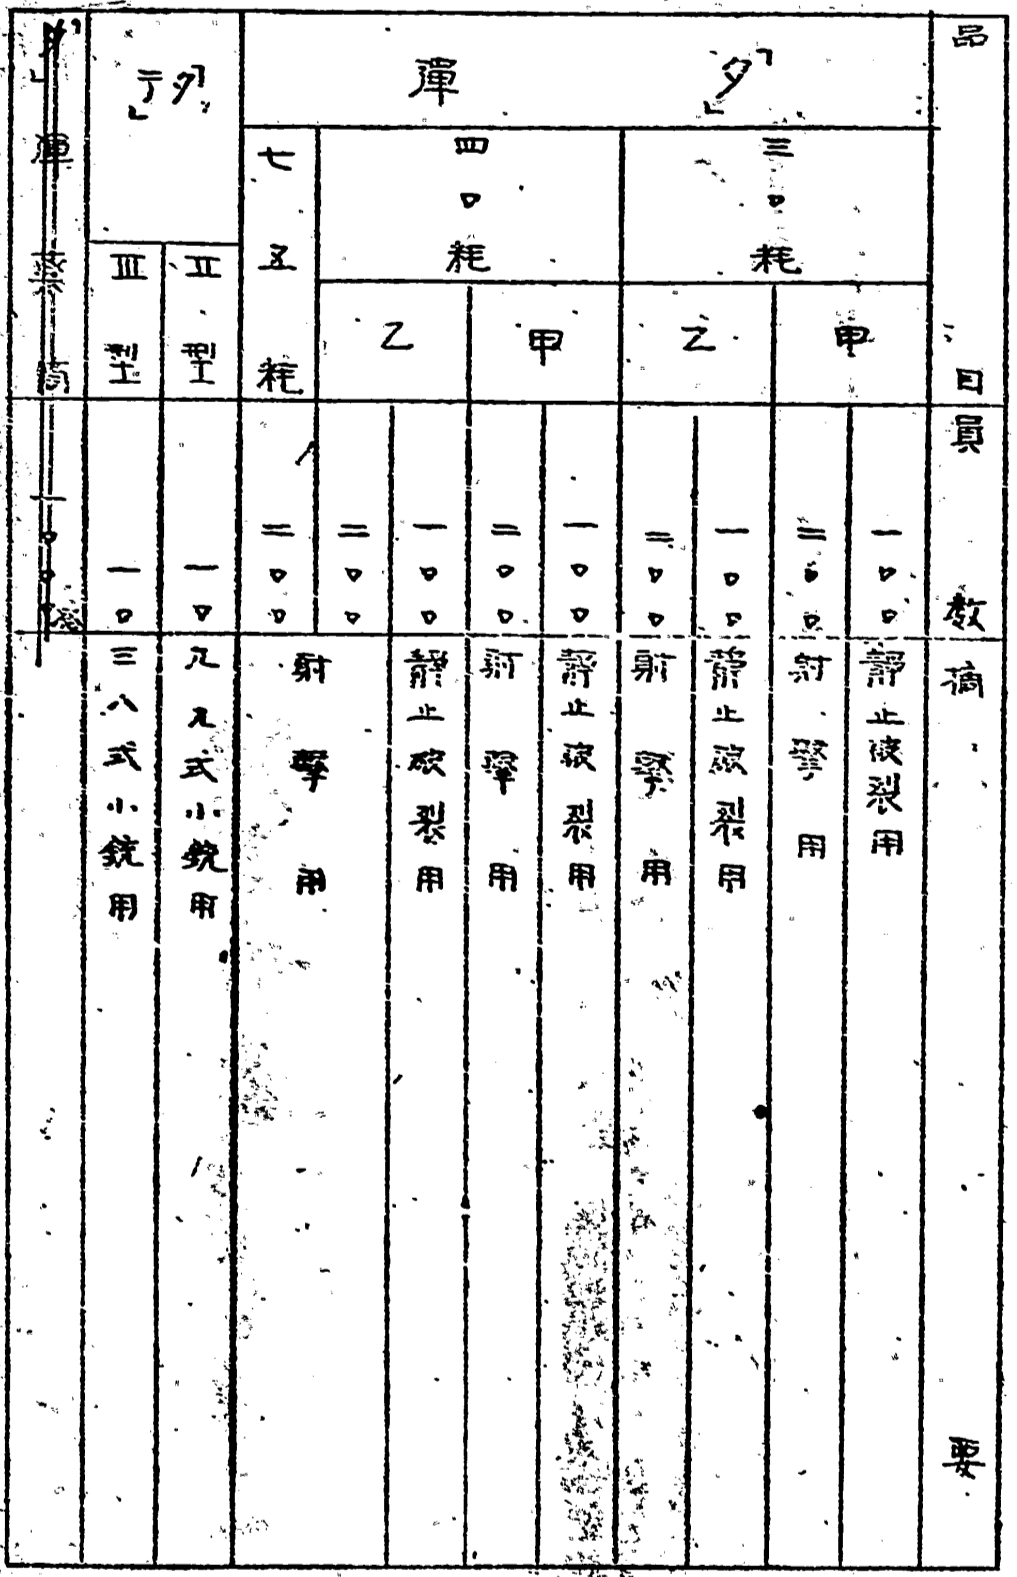 品目
員数
摘要
「タ」彈
三〇粍
甲
一〇〇
静止破裂用
二〇〇
射撃用
乙
一〇〇
静止破裂用
二〇〇
射撃用
四〇粍
甲
一〇〇
静止破裂用
二〇〇
射撃用
乙
一〇〇
静止破裂用
二〇〇
七五粍
二〇〇
射撃用
「タテ」
II型
一〇
九九式小銃用
III型
一〇
三八式小銃用
「タ」彈薬筒
一〇〇〇